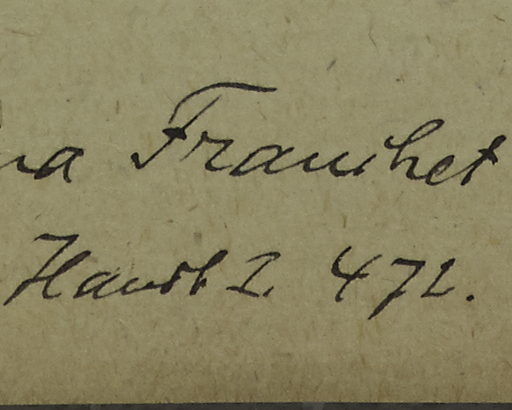 na Franchet
Handb I. 472.